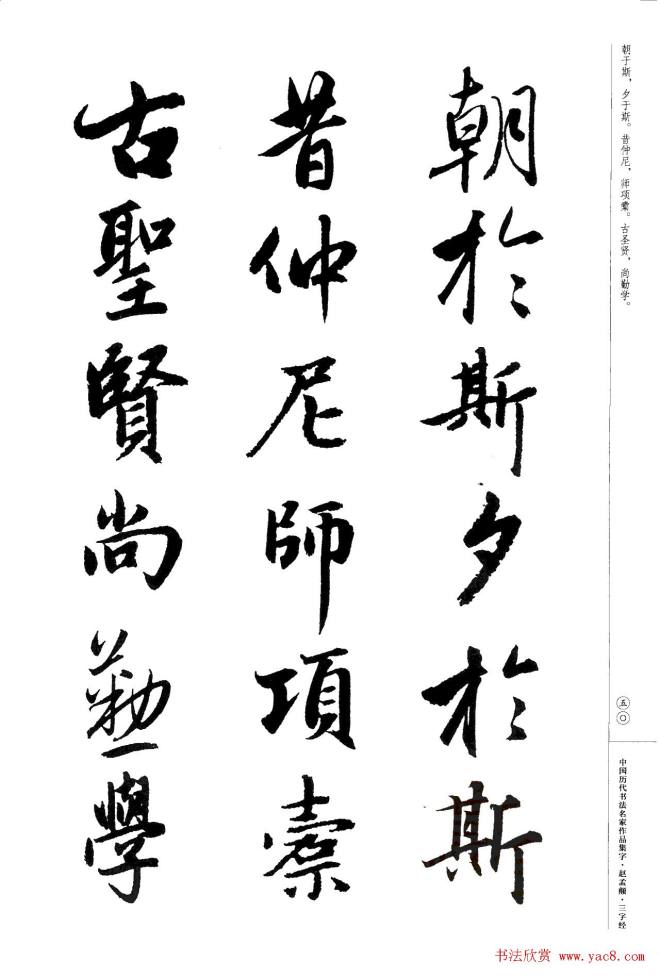 朝於斯夕於斯
昔仲尼師項橐
古聖賢尚勤學
朝于斯，夕于斯。昔仲尼，师项橐。古圣贤，尚勤学。
五〇
中国历代书法名家作品集字·赵孟頫·三字经
书法欣赏 www.yac8.com